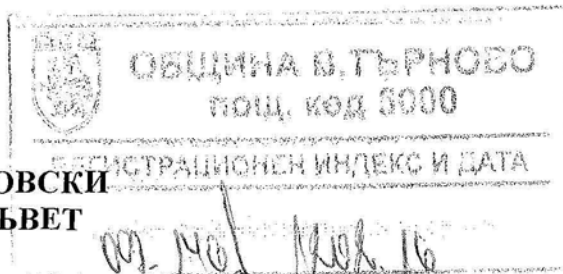 ОБЩИНА В.ТЪРНОВО
пощ. код 5000
РЕГИСТРАЦИОНЕН ИНДЕКС И ДАТА
ОВСКИ
ЪВЕТ